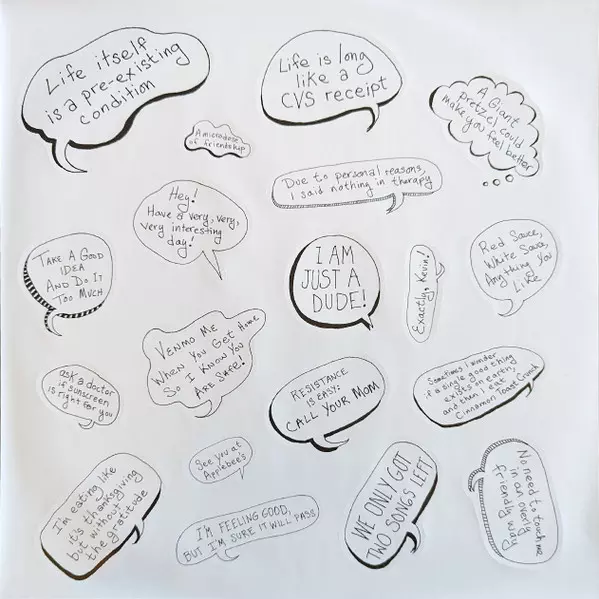 Life itself
is a pre-existing
condition
Life is long
like a
CVS receipt
A Giant
pretzel could
make you feel better
A microdose
of friendship
Due to personal reasons,
i said nothing in therapy
Hey!
Have a very, very,
very interesting
day!
TAKE A GOOD
IDEA
AND DO IT
TOO MUCH
I AM
JUST A
DUDE!
Exactly, Kevin!
Red Sauce,
White Sauce,
Anything You
Like
VENMO ME
WHEN YOU GET HOME
SO I KNOW YOU
ARE SAFE!
ask a doctor
if sunscreen
is right for you
RESISTANCE
IS EASY:
CALL YOUR MOM
Sometimes I wonder
if a single good thing
exists on earth,
and then I eat
Cinnamon Toast Crunch
See you at
Applebee's
I'm eating like
it's thanksgiving
but without
the gratitude
I'M FEELING GOOD,
BUT I'M SURE IT WILL PASS
WE ONLY GOT
TWO SONGS LEFT
No need to touch me
in an overly
friendly way